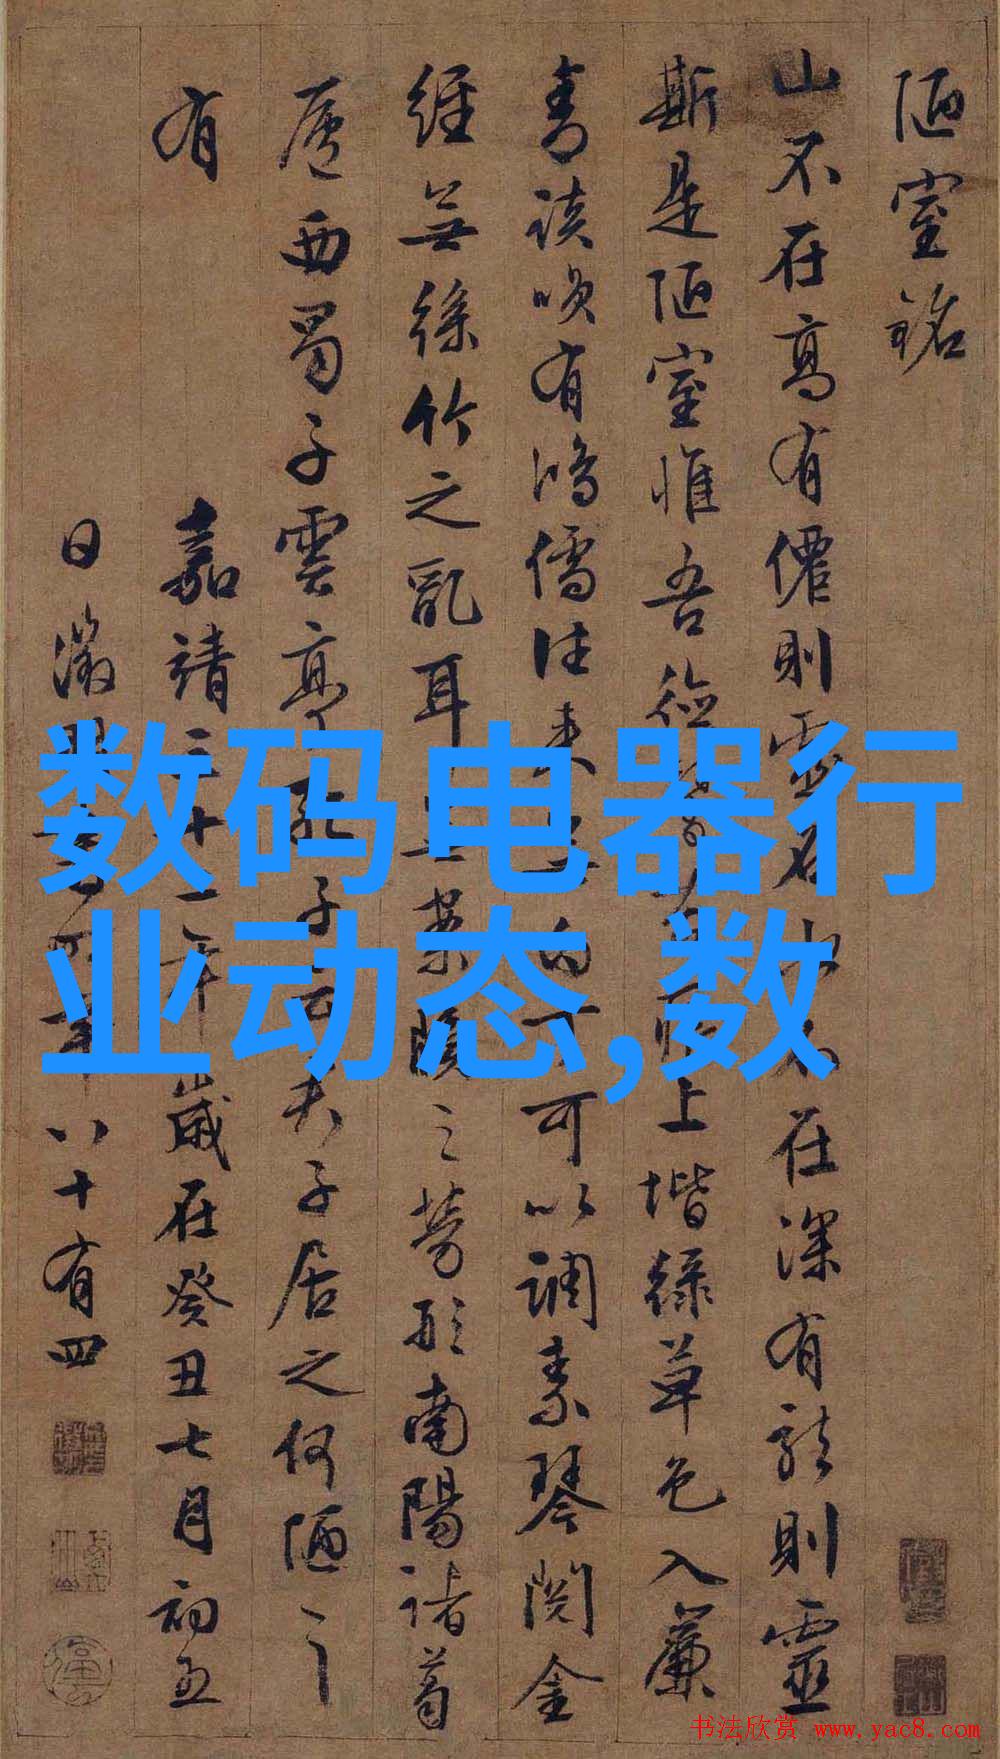 陋室銘
山不在高有僊則水不在深有龍則靈
斯是陋室惟吾德上堦綠草色入簾
青談唉有鴻儒往來白丁可以調素琴閱金
經無絲竹之亂耳案牘之勞形南陽諸葛
廬西蜀子雲亭孔子云夫子居之何陋之
有
嘉靖三十二年歲在癸丑七月初五
日徵明年八十有四
数码电器行
业动态,数
书法欣赏 www.yac8.com